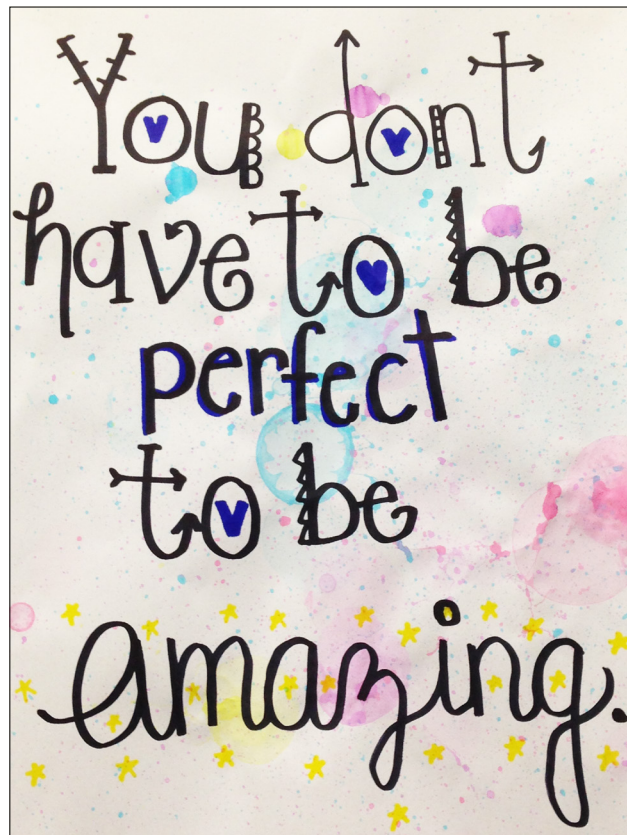 You dont
have to be
perfect
to be
amazing.